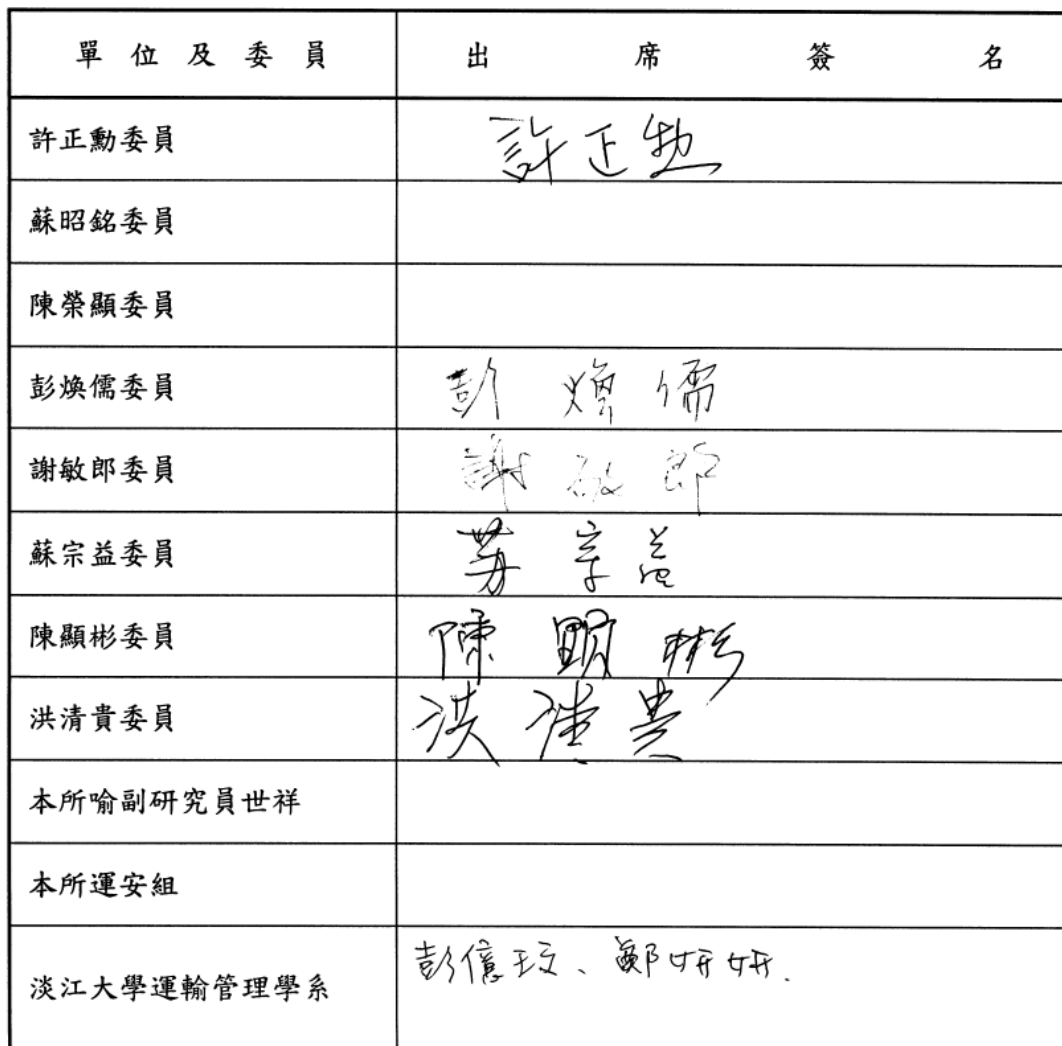 單位及委員 出席簽名
許正勳委員 許正勳
蘇昭銘委員
陳榮顯委員
彭煥儒委員 彭煥儒
謝敏郎委員 謝敏郎
蘇宗益委員 蘇宗益
陳顯彬委員 陳顯彬
洪清貴委員 洪清貴
本所喻副研究員世祥
本所運安組
淡江大學運輸管理學系 彭億玟、鄭妍妍.